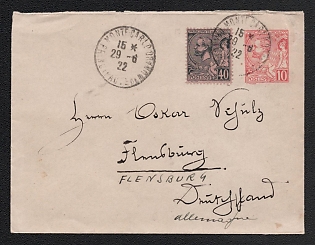 MONTE-CARLO
15 *
29 -8
22
MONTE-CARLO
15 *
29 -8
22
40
10
Herrn Oskar Schulz
Flensburg
FLENSBURG
Deutschland
allemagne